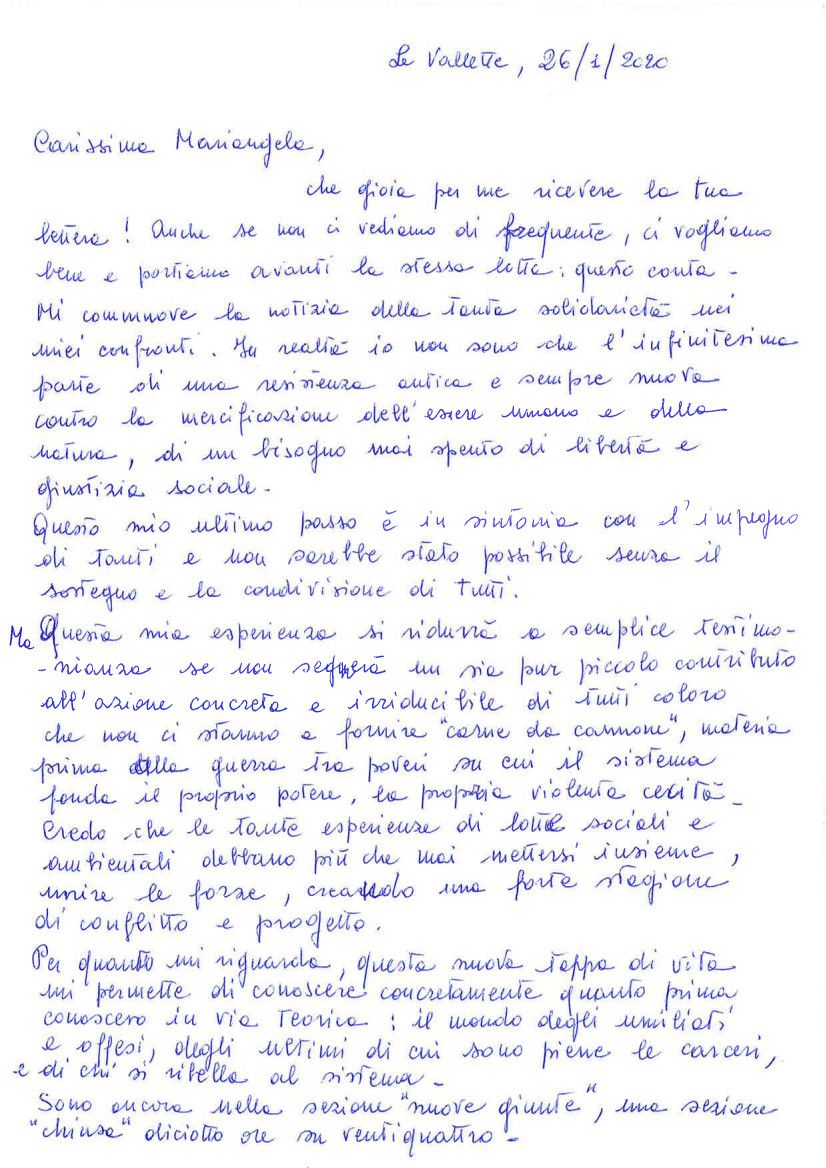 Le Vallette, 26/1/2020
Carissima Mariangela,
che gioia per me ricevere la tua
lettera! Anche se non ci vediamo di frequente, ci vogliamo
bene e portiamo avanti la stessa lotta: questo conta -
Mi commuove la notizia della tanta solidarietà nei
miei confronti. In realtà io non sono che l'infinitesima
parte di una resistenza antica e sempre nuova
contro la mercificazione dell'essere umano e della
natura, di un bisogno mai spento di libertà e
giustizia sociale -
Questo mio ultimo passo è in sintonia con l'impegno
di tanti e non sarebbe stato possibile senza il
sostegno e la condivisione di tutti.
Ma Questa mia esperienza si ridurrà a semplice testimo-
-nianza se non seguirà un sia pur piccolo contributo
all'azione concreta e irriducibile di tutti coloro
che non ci stanno a fornire "carne da cannone", materia
prima della guerra tra poveri su cui il sistema
fonda il proprio potere, la propria violenta cecità -
Credo che le tante esperienze di lotte sociali e
ambientali debbano più che mai mettersi insieme,
unire le forze, creando una forte stagione
di conflitto e progetto.
Per quanto mi riguarda, questa nuova tappa di vita
mi permette di conoscere concretamente quanto prima
conoscevo in via teorica: il mondo degli umiliati
e offesi, degli ultimi di cui sono piene le carceri,
e di chi si ribella al sistema -
Sono ancora nella sezione "nuove giunte", una sezione
"chiusa" diciotto ore su ventiquattro -